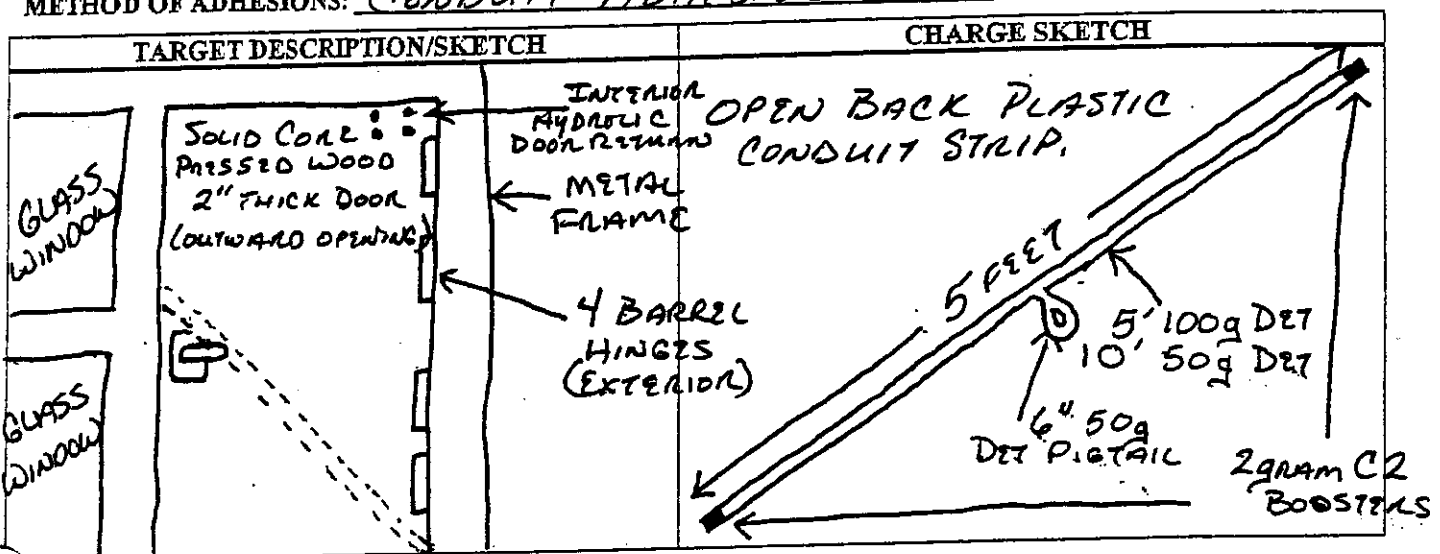 METHOD OF ADHESIONS:
TARGET DESCRIPTION/SKETCH
CHARGE SKETCH
GLASS
WINDOW
GLASS
WINDOW
SOLID CORE
PRESSED WOOD
2" THICK DOOR
(OUTWARD OPENING)
INTERIOR
HYDROLIC
DOOR RETURN
METAL
FRAME
4 BARREL
HINGES
(EXTERIOR)
OPEN BACK PLASTIC
CONDUIT STRIP.
5 FEET
5' 100g DET
10' 50g DET
6" 50g
DET PIGTAIL
2gRAM C2
BOOSTERS